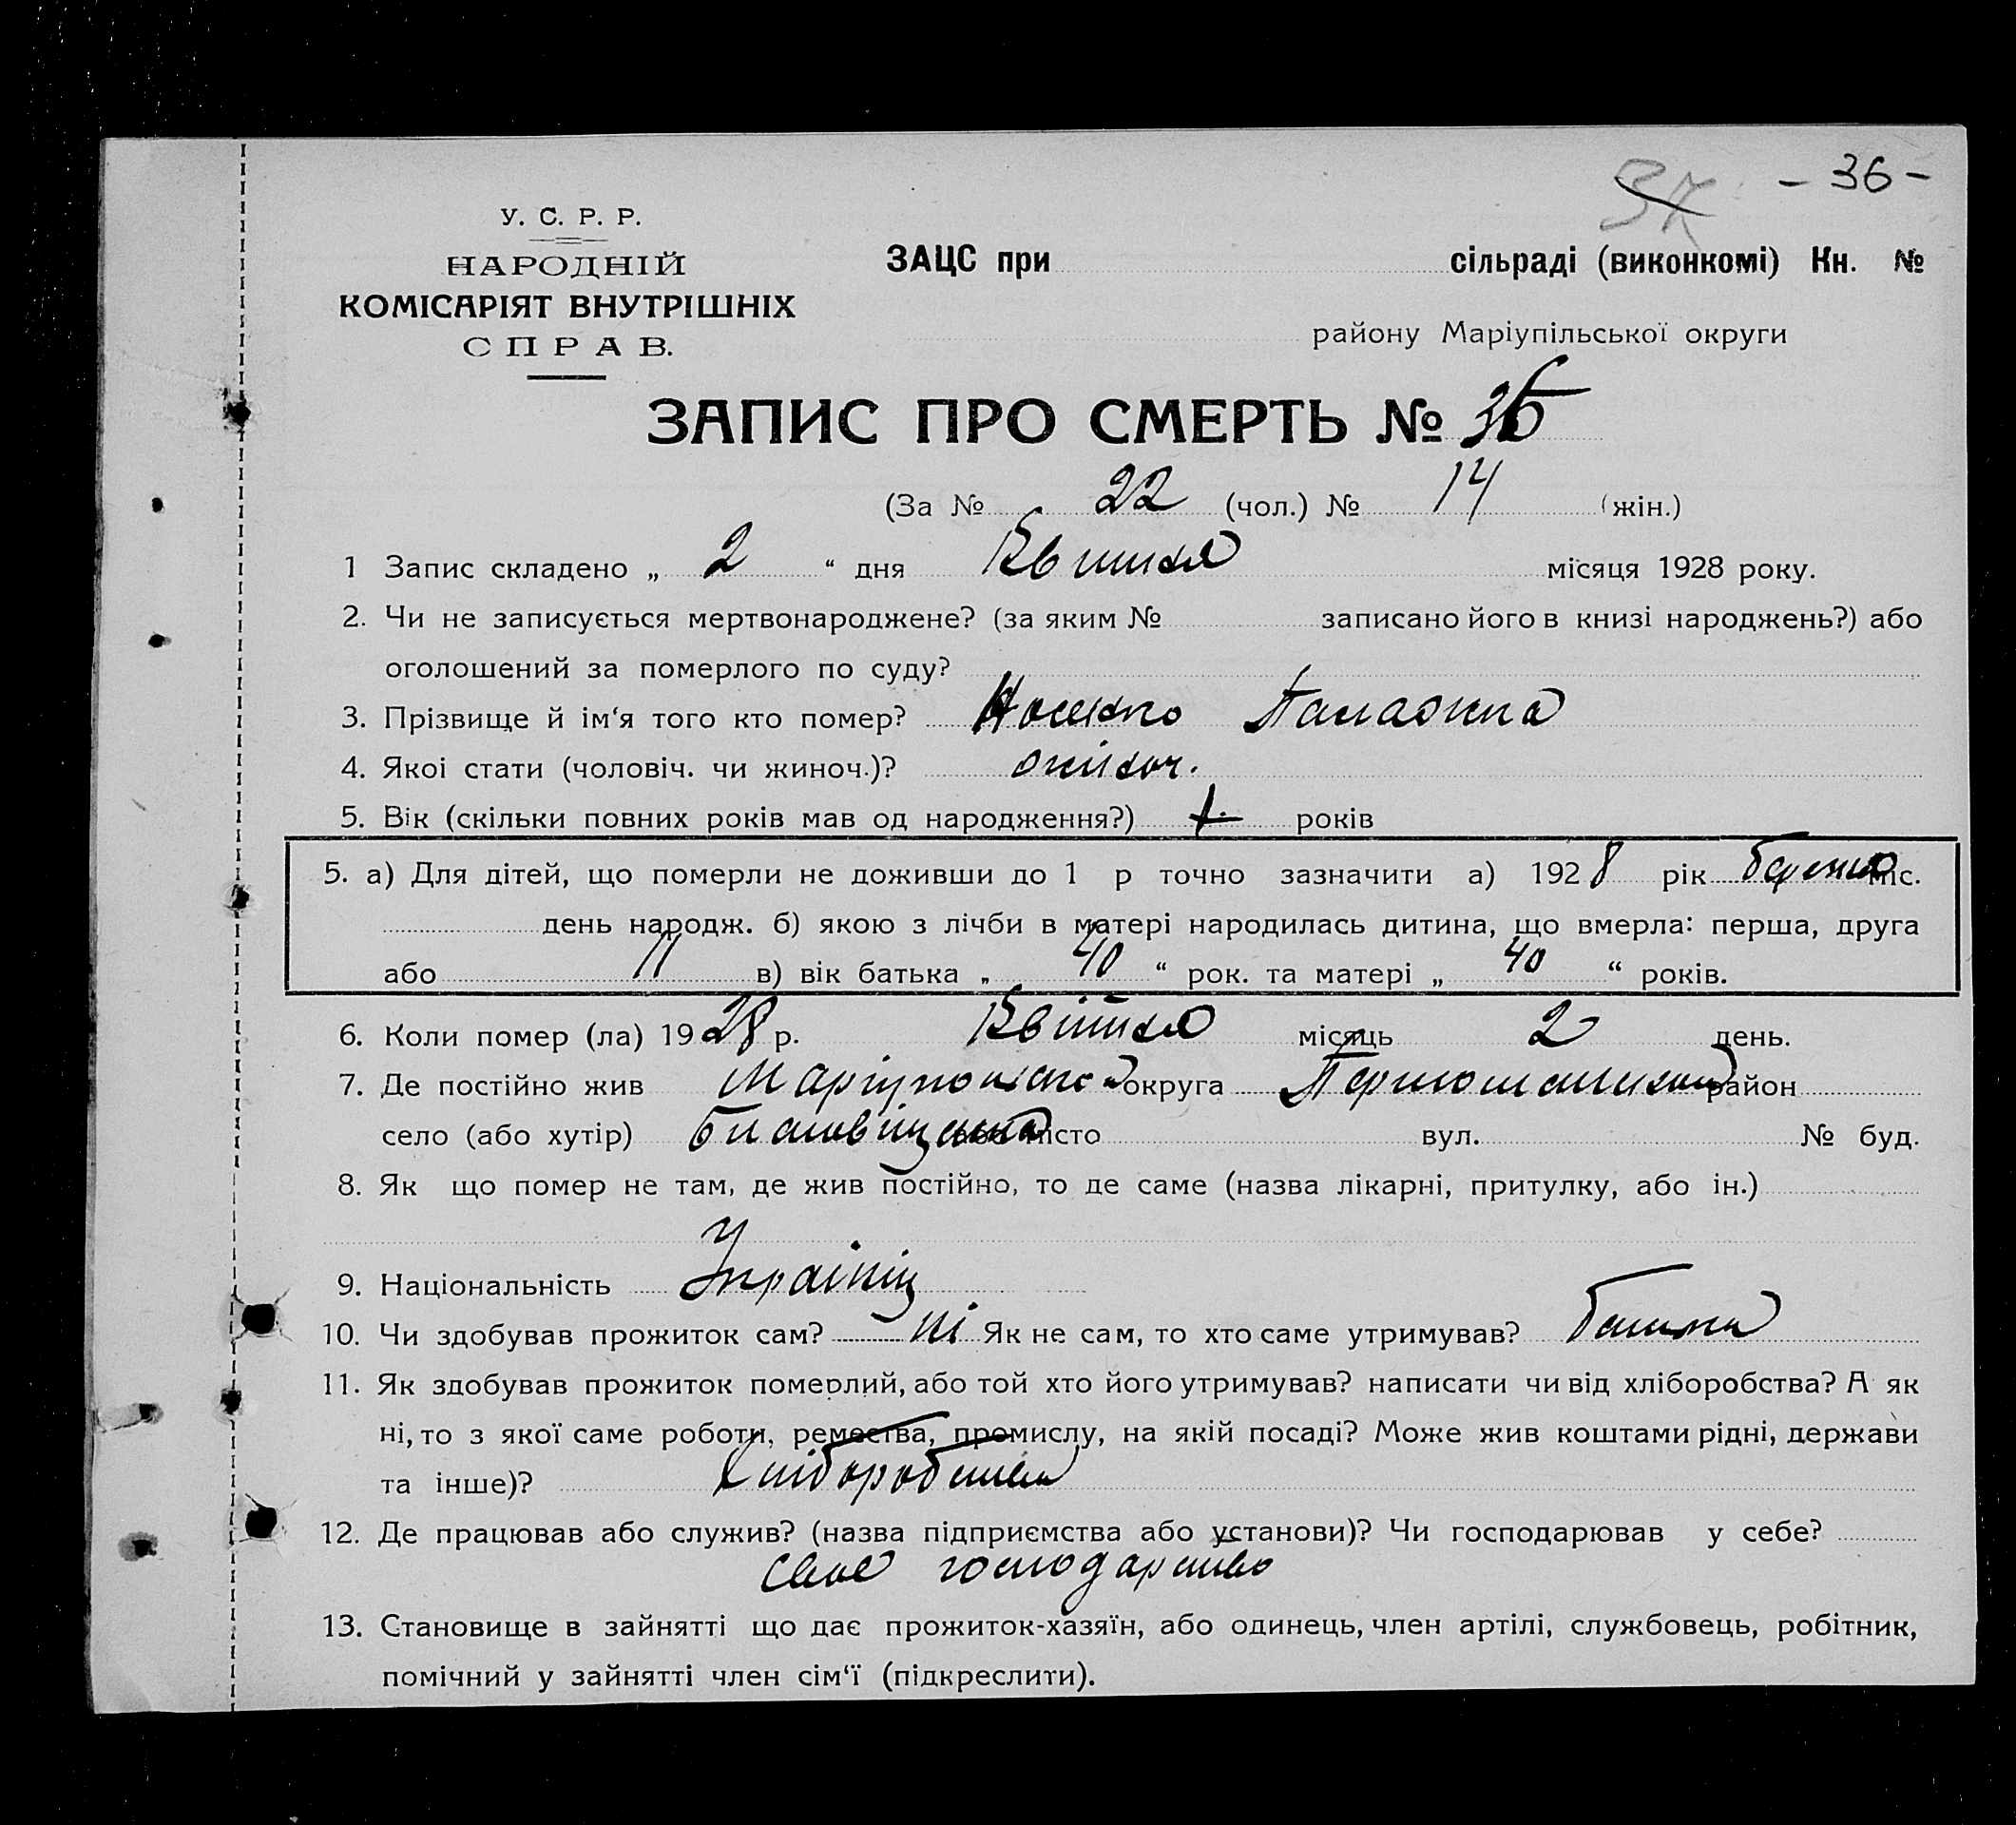 37 - 36 -
У. С. Р. Р.
НАРОДНІЙ
КОМІСАРІЯТ ВНУТРІШНІХ
СПРАВ.
ЗАЦС при сільраді (виконкомі) Кн. №
району Маріупільської округи
ЗАПИС ПРО СМЕРТЬ № 36
(За № 22 (чол.) № 14 (жін.)
1 Запис складено „ 2 “ дня Квітня місяця 1928 року.
2. Чи не записується мертвонароджене? (за яким № записано його в книзі народжень?) або
оголошений за померлого по суду?
3. Прізвище й ім‘я того кто помер? Ношко
4. Якоі стати (чоловіч. чи жиноч.)? жіноч.
5. Вік (скільки повних років мав од народження?) років
5. а) Для дітей, що померли не доживши до 1 р точно зазначити а) 1928 рік березня міс.
день народж. б) якою з лічби в матері народилась дитина, що вмерла: перша, друга
або 11 в) вік батька „ 40 “ рок. та матері „ 40 “ років.
6. Коли помер (ла) 1928 р. Квітня місяць 2 день.
7. Де постійно жив округа район
село (або хутір) або місто вул. № буд.
8. Як що помер не там, де жив постійно, то де саме (назва лікарні, притулку, або ін.)
9. Національність Українц
10. Чи здобував прожиток сам? ні Як не сам, то хто саме утримував? батьки
11. Як здобував прожиток померлий, або той хто його утримував? написати чи від хліборобства? А як
ні, то з якої саме роботи, ремества, промислу, на якій посаді? Може жив коштами рідні, держави
та інше)?
12. Де працював або служив? (назва підприємства або установи)? Чи господарював у себе?
своє господарство
13. Становище в зайнятті що дає прожиток-хазяїн, або одинець, член артілі, службовець, робітник,
помічний у зайнятті член сім‘ї (підкреслити).